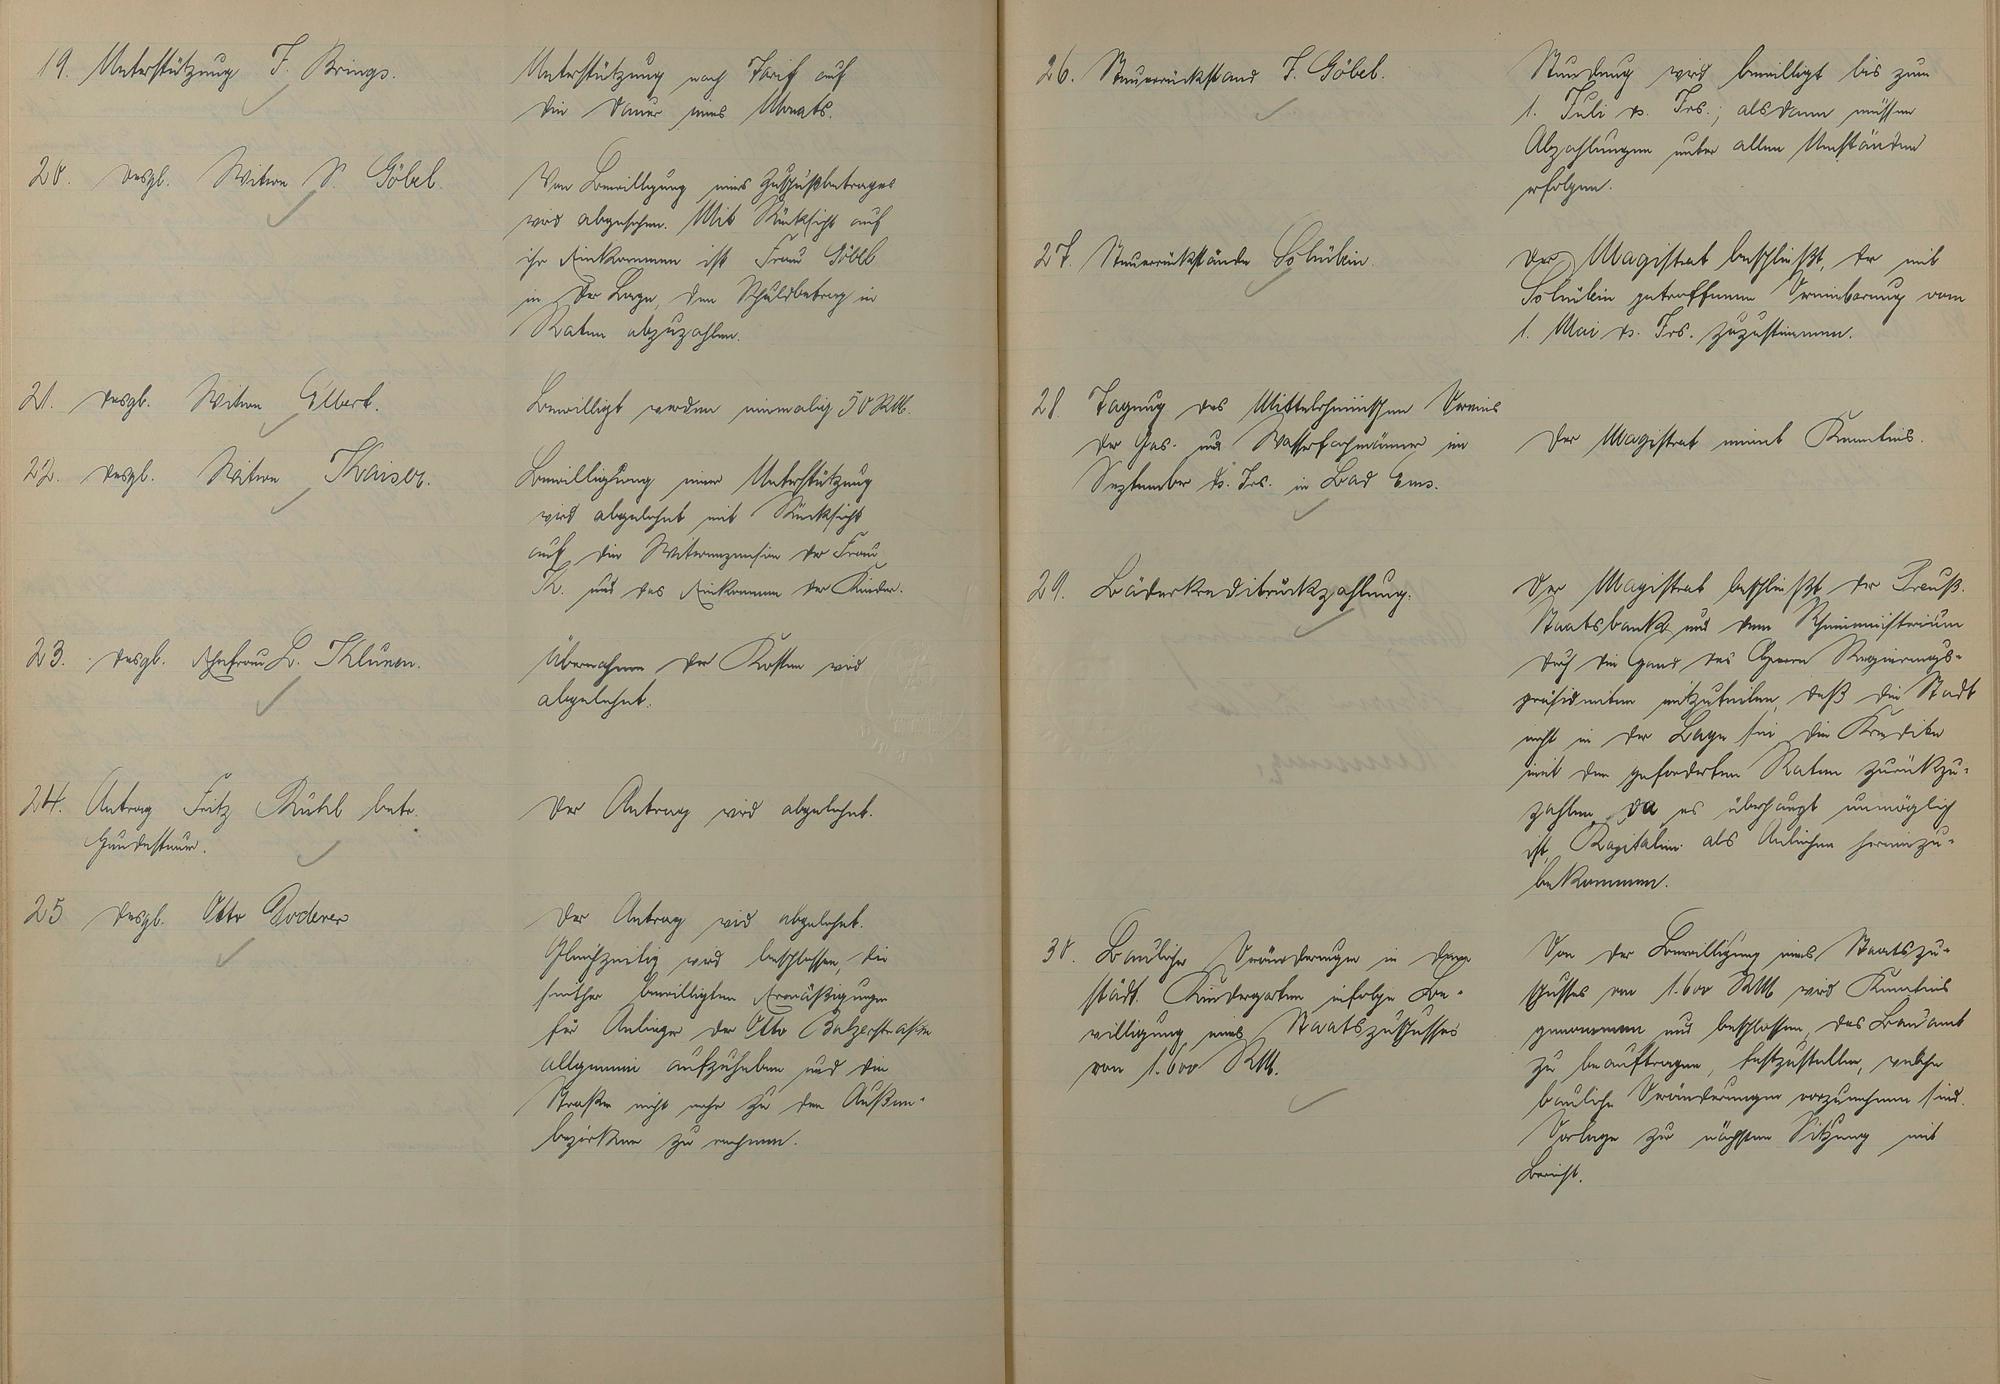 19. Unterstützung J. Brings.
Unterstützung nach Tarif auf
die Dauer eines Monats.
20. desgl. Witwe P. Göbel.
Von Bewilligung eines Zuschußbetrages
wird abgesehen. Mit Rücksicht auf
ihr Einkommen ist Frau Göbel
in der Lage, den Schuldbetrag in
Raten abzuzahlen.
21. desgl. Witwe Elbert.
Bewilligt werden einmalig 50 RM.
22. desgl. Witwe Kaiser.
Bewilligung einer Unterstützung
wird abgelehnt mit Rücksicht
auf die Witwenpension der Frau
K. und das Einkommen der Kinder.
23. desgl. Ehefrau L. Klünen.
Übernahme der Kosten wird
abgelehnt.
24. Antrag Fritz Rühl betr.
Hundesteuer.
Der Antrag wird abgelehnt.
25 desgl. Otto Doderer
Der Antrag wird abgelehnt.
Gleichzeitig wird beschlossen, die
seither bewilligten Ermäßigungen
für Anlieger der Otto Balzerstraße
allgemein aufzuheben und die
Straße nicht mehr zu den Außen-
bezirken zu rechnen.
26. Steuerrückstand J. Göbel.
Stundung wird bewilligt bis zum
1. Juli ds. Jrs.; alsdann müssen
Abzahlungen unter allen Umständen
erfolgen.
27. Steuerrückstände Schüblein.
Der Magistrat beschließt, der mit
Schüblein getroffenen Vereinbarung vom
1. Mai ds. Jrs. zuzustimmen.
28 Tagung des Mittelrheinischen Vereins
der Gas- und Wasserfachmänner im
September ds. Jrs. in Bad Ems.
Der Magistrat nimmt Kenntnis.
29. Bäderkreditrückzahlung.
Der Magistrat beschließt der Preuß.
Staatsbank und dem Rheinministerium
durch die Hand des Herrn Regierungs-
präsidenten mitzuteilen, daß die Stadt
nicht in der Lage sei die Kredite
mit den geforderten Raten zurückzu-
zahlen, da es überhaupt unmöglich
ist, Kapitalien als Anleihen hereinzu-
bekommen.
30. Bauliche Veränderungen in dem
städt. Kindergarten infolge Be-
willigung eines Staatszuschusses
von 1.600 RM.
Von der Bewilligung eines Staatszu-
schusses von 1.600 RM wird Kenntnis
genommen und beschlossen, das Bauamt
zu beauftragen, festzustellen, welche
bauliche Veränderungen vorzunehmen sind.
Vorlage zur nächsten Sitzung mit
Bericht.